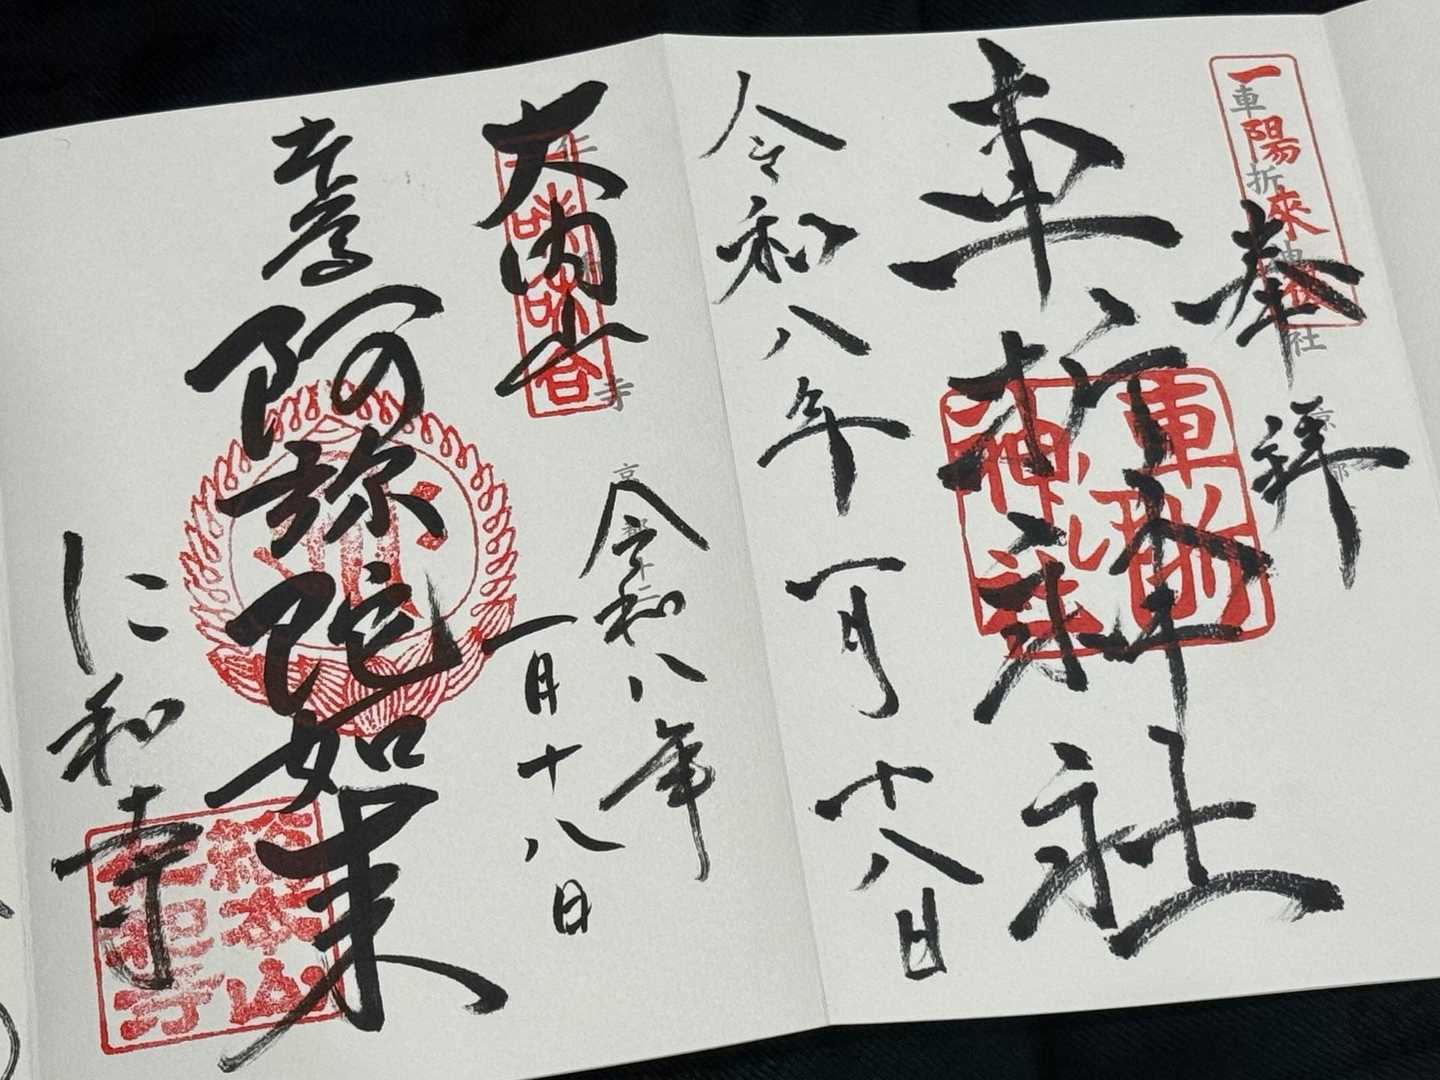 一陽來復
奉拝
車折神社
車折神社
令和八年
一月
十八日
大内山
令和八年
一月十八日
本尊
阿弥陀如来
仁和寺
総本山
仁和寺